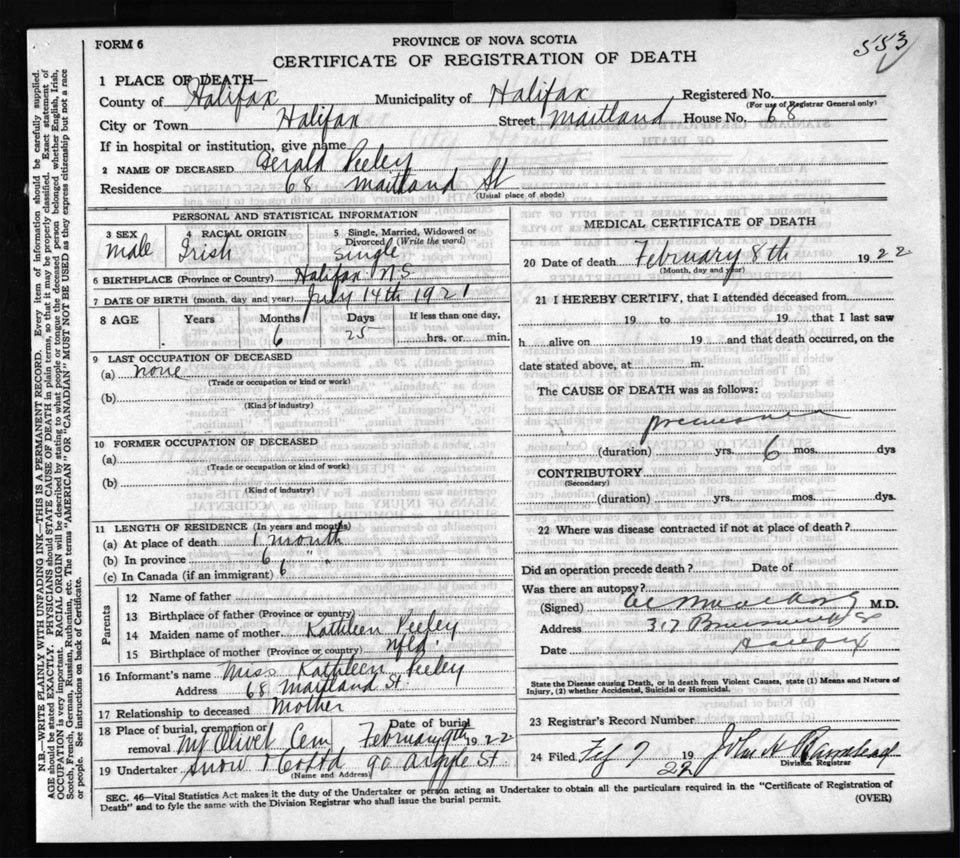 FORM 6
PROVINCE OF NOVA SCOTIA
553
CERTIFICATE OF REGISTRATION OF DEATH
1 PLACE OF DEATH—
County of Halifax Municipality of Halifax Registered No.
(For use of Registrar General only)
City or Town Halifax Street Maitland House No. 68
If in hospital or institution, give name
2 NAME OF DECEASED Gerald Peeley
Residence 68 Maitland St
(Usual place of abode)
PERSONAL AND STATISTICAL INFORMATION
3 SEX 4 RACIAL ORIGIN 5 Single, Married, Widowed or Divorced (Write the word)
Male Irish Single
6 BIRTHPLACE (Province or Country) Halifax N.S
7 DATE OF BIRTH (month, day and year) July 14th 1921
8 AGE Years Months Days If less than one day,
6 25 hrs. or min.
9 LAST OCCUPATION OF DECEASED
(a) none
(Trade or occupation or kind or work)
(b)
(Kind of industry)
10 FORMER OCCUPATION OF DECEASED
(a)
(Trade or occupation or kind of work)
(b)
(Kind of industry)
11 LENGTH OF RESIDENCE (In years and months)
(a) At place of death 1 month
(b) In province 6 "
(c) In Canada (if an immigrant) 6
Parents
12 Name of father
13 Birthplace of father (Province or country)
14 Maiden name of mother Kathleen Peeley
15 Birthplace of mother (Province or country) Nfld
16 Informant's name Miss Kathleen Peeley
Address 68 Maitland St.
17 Relationship to deceased Mother
18 Place of burial, cremation or removal Mt Olivet Cem Date of burial February 9th 1922
19 Undertaker Snow & 90 Argyle St.
(Name and Address)
MEDICAL CERTIFICATE OF DEATH
20 Date of death February 8th 1922
(Month, day and year)
21 I HEREBY CERTIFY, that I attended deceased from
19 to 19 that I last saw
h alive on 19 and that death occurred, on the
date stated above, at m.
The CAUSE OF DEATH was as follows:
(duration) yrs. 6 mos. dys
CONTRIBUTORY
(Secondary)
(duration) yrs. mos. dys.
22 Where was disease contracted if not at place of death?
Did an operation precede death? Date of
Was there an autopsy?
(Signed) M.D.
Address 317 Brunswick St
Date
State the Disease causing Death, or in death from Violent Causes, state (1) Means and Nature of Injury, (2) whether Accidental, Suicidal or Homicidal.
23 Registrar's Record Number
24 Filed 19 22 John A
Division Registrar
SEC. 46—Vital Statistics Act makes it the duty of the Undertaker or person acting as Undertaker to obtain all the particulars required in the "Certificate of Registration of
Death" and to fyle the same with the Division Registrar who shall issue the burial permit.
(OVER)
N.B.—WRITE PLAINLY WITH UNFADING INK—THIS IS A PERMANENT RECORD. Every item of information should be carefully supplied.
AGE should be stated EXACTLY. PHYSICIANS should STATE CAUSE OF DEATH in plain terms, so that it may be properly classified. Exact statement of
OCCUPATION is very important. RACIAL ORIGIN will be described by stating to what people or tongue the deceased person belonged whether English, Irish,
Scotch, French, German, Russian, Ruthenian, etc. The terms "AMERICAN" OR "CANADIAN" MUST NOT BE USED as they express citizenship but not a race
or people. See instructions on back of Certificate.